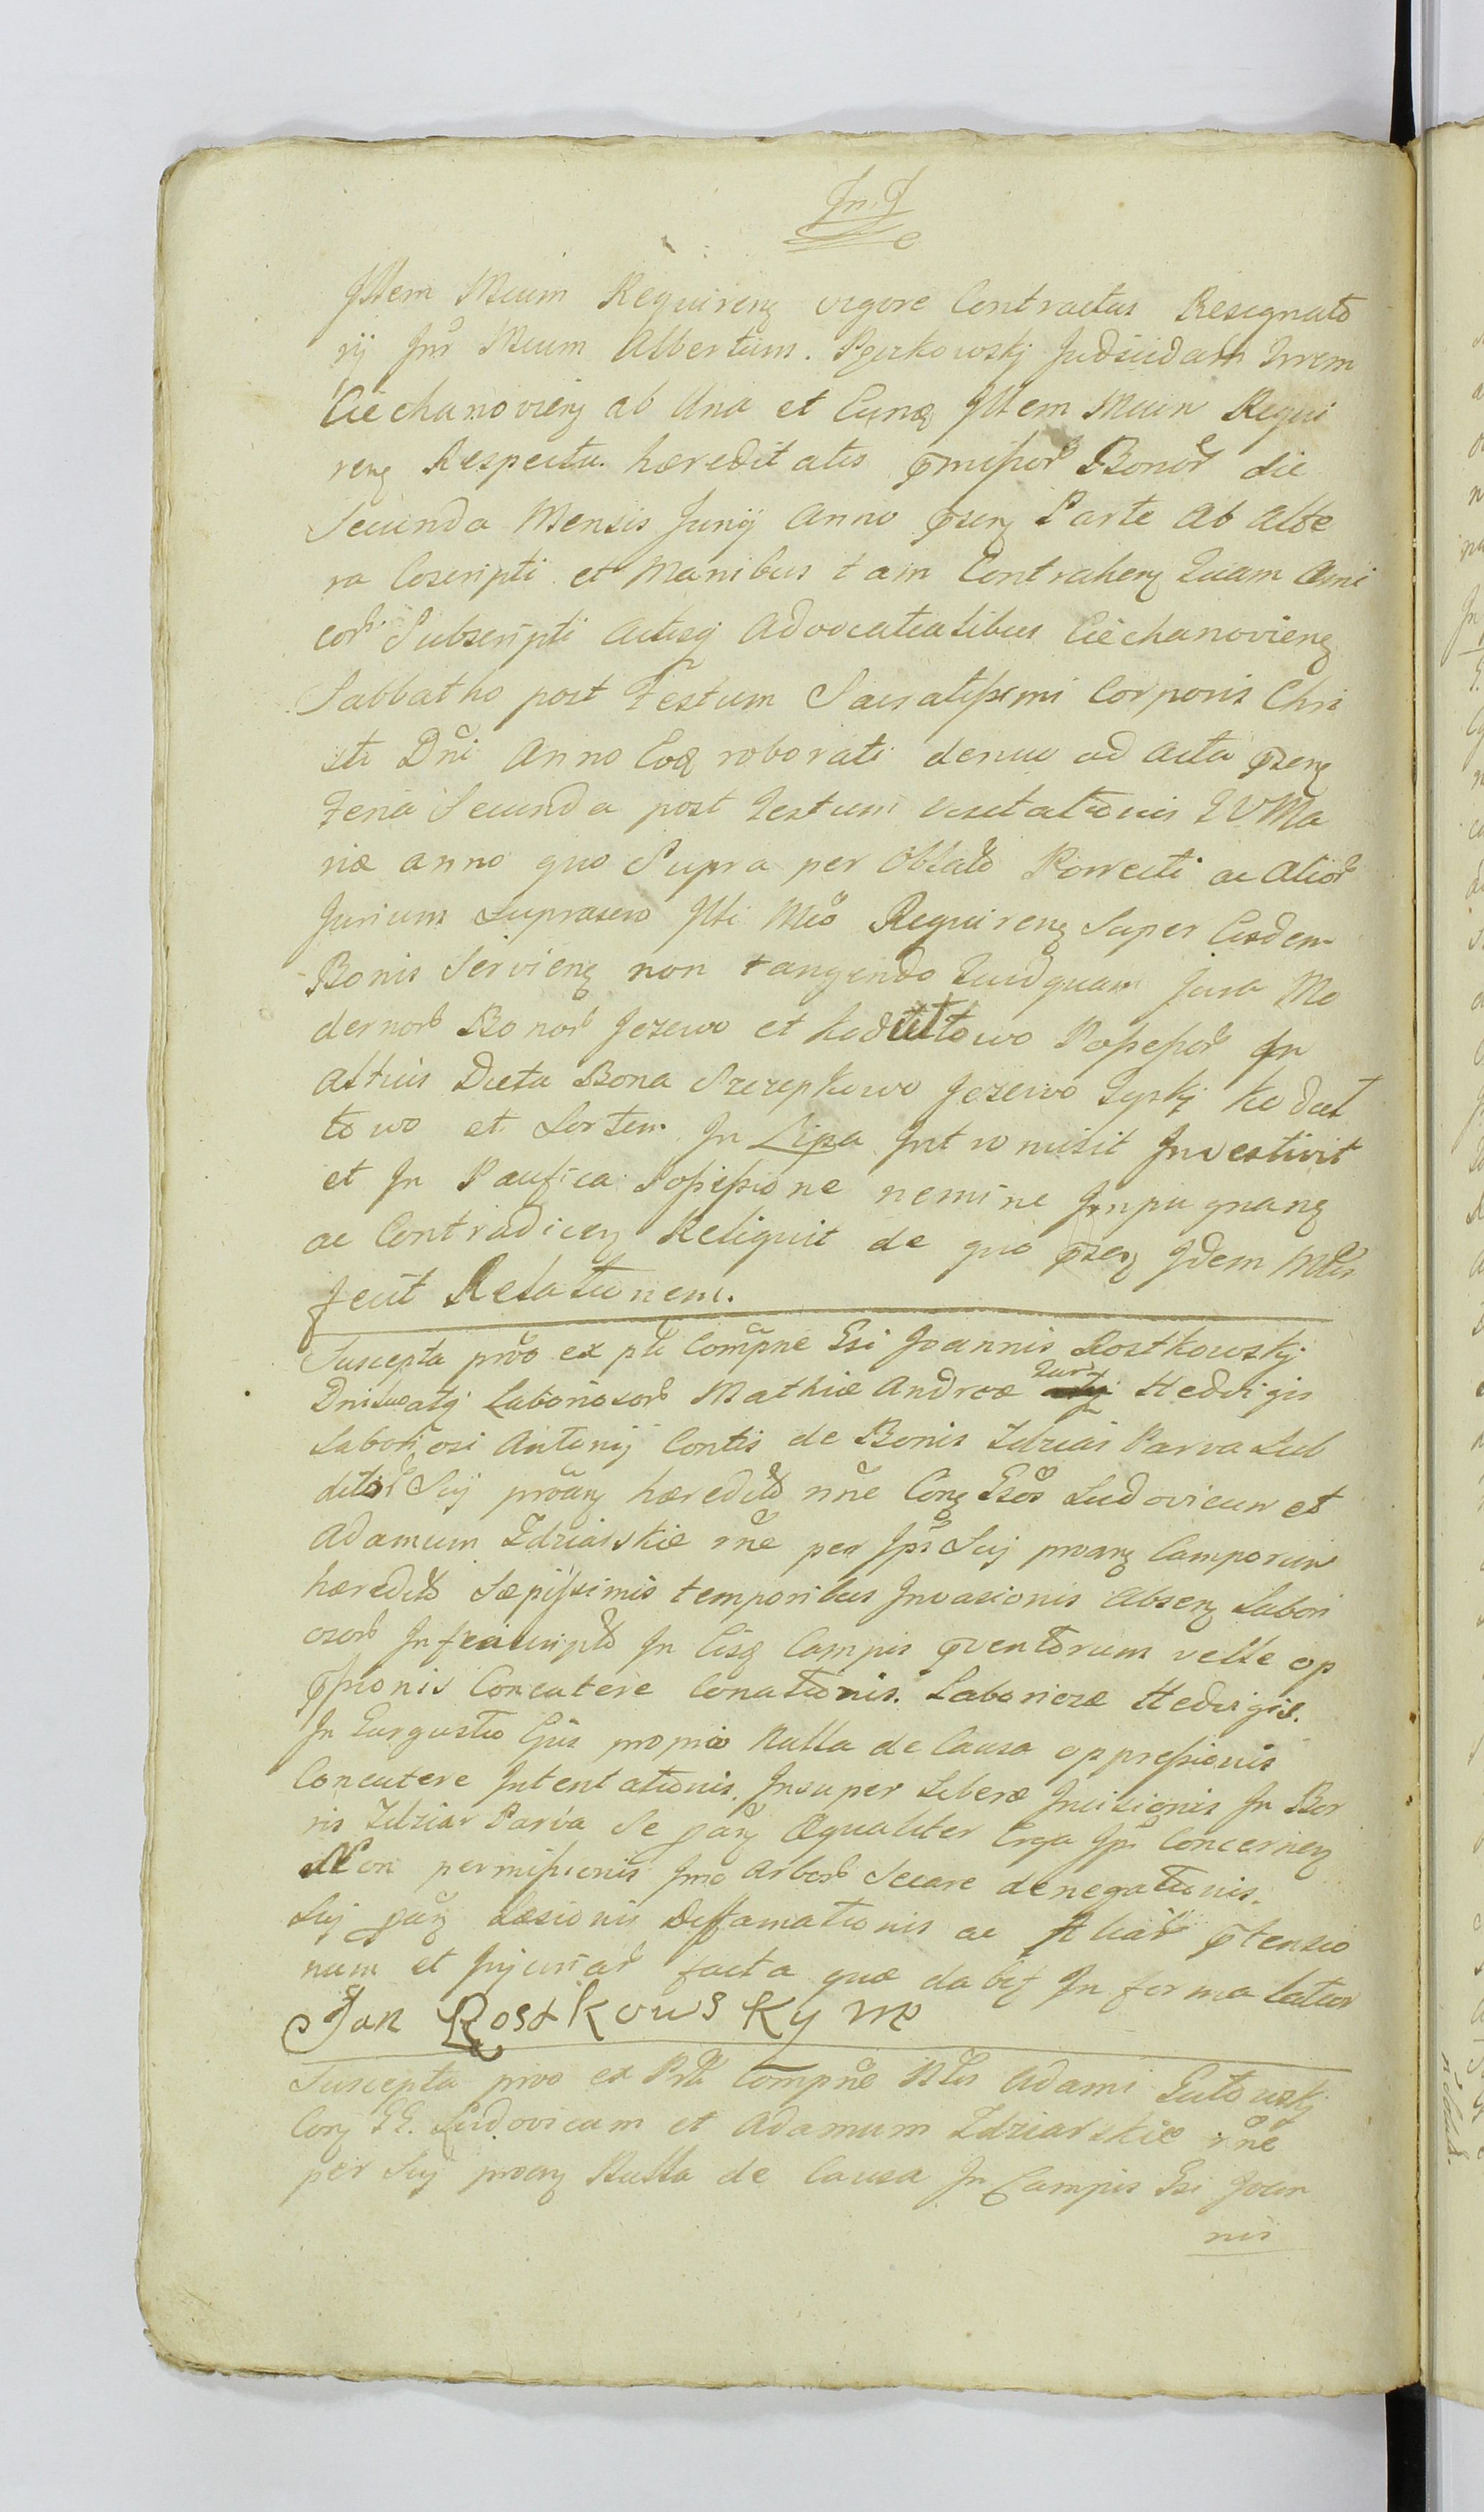 Jllem Mcum Requirenz vigore Contractus Resignato
rij Jnr Mcum Albertum. Pgurkowskj Judsiudam Trrem
Ciechanovienz ab Una et Eunq Jllem Mcum Requi
renz Respectu. hæreditatis pmissor Bonor die
Secunda Mensis Junij Anno psenz Parte Ab Alte
ra Coscripti et Manibus tam Contrahenz Quam Ami
cor Subscripti Actisq Advocatialibus Ciechanovienz
Sabbatho post Festum Sacratissimi Corporis Chri
sti Dni Anno Eoq roborati denuo ad Acta psenz
Feria Secunda post Festum Visitationis BVMa
riæ anno quo Supra per Oblato Porrecti ac Alior
Jurium Suprascro Jlli Mco Requirenz Super Eisdem
Bonis Servienz non tangendo Quidquam Jura Mo
dernor Bonor Jezewo et Koduttowo Possessor Jn
Altius Dicta Bona Szczepkowo Jezewo Lyskj Kodut
towo et Sortem Jn Lipa Jntromisit Jnvestivit
et Jn Pacifica Possessione nemine Jmpugnanz
ac Contradicenz Reliquit de quo psens Jdem Mtlis
fecit Relationem.
Suscepta prvo ex pte Compne Gsi Joannis Rostkowskj
Dni Suo atq Laboriosor Mathiæ Andreæ Hedvigis
Laboriosi Antonij Contis de Bonis Zdziar Parva Sub
ditor Suj provanz hæredito nne Conz Gsos Ludovicum et
Adamum Zdziarskie rne per Jps Suj provanz Camporum
hæredito Sæpissimis temporibus Jnvasionis Absenz Labori
osor Jnfrascripto Jn Eisq Campis pventorum velle op
pssionis Concutere Conationis. Laboriozæ Hedvigis.
Jn Gurgustio Ejus proprio Nulla de Causa oppressionis
Concutere Jntentationis. Jnsuper Liberæ Jncisionis Jn Bor
ris Zdziar Parva Se panz Æqualiter Erga Jps Concernenz
Non permissionis Jmo Arbor Secare denegationis.
Suj panz Læsionis Deffamationis ac Aliar ptensio
num et Jnjuriar facta quæ dabit Jn forma latior
Jan Rostkowsky mp
Suscepta prvo ex Pte Compne Ntis Adami Gutowskj
Conz GG. Ludovicum et Adamum Zdziarskie rne
per Suj provenz Nulla de Causa Jn Campis Gsi Joan
nis